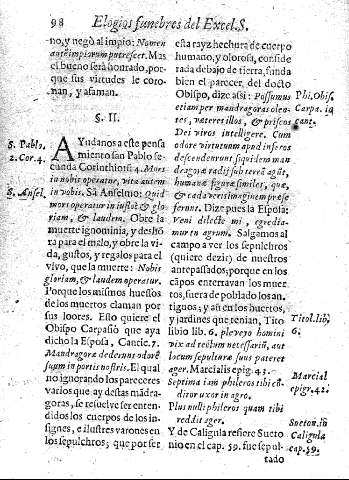 98 Elogios funebres del Excel. S.
no, y negò al impio: Nomen
autē impiorum putrescet. Mas
el bueno será honrado, porque
sus virtudes le coronan,
y afaman.
§. II.
S. Pablo,
2. Cor. 4.
S. Ansel.
AYudanos a este pensamiento
san Pablo secunda
Corinthior. 4. Mors
in nobis operatur, vita autem
in vobis. Sã Anselmo: Quid
mors operatur in iustos & gloriam,
& laudem. Obre la
muerte ignominia, y deshõra
para el malo, y obre la vida,
gustos, y regalos para el
vivo, que la muerte: Nobis
gloriam, & laudem operatur.
Porque los mismos huessos
de los muertos claman por
sus loores. Esso quiere el
Obispo Carpasio que aya
dicho la Esposa, Cantic. 7.
Mandragoræ dederunt odorẽ
suum in portis nostris. El qual
no ignorando los pareceres
varios que ay destas mādragoras,
se resuelve ser entendidos
los cuerpos de los insignes,
e ilustres varones en
los sepulchros; que por ser
esta rayz hechura de cuerpo
humano, y olorosa, considerada
debajo de tierra, funda
bien el parecer del docto
Obispo, dize assi: Possumus
etiam per mandragoras oleates,
veteres illos, & priscos
Dei viros intelligere. Cum
odore virtutum apud inferos
descenderunt siquidem mandragoræ
radij sub terra agūt,
humanæ figuræ similes, quæ,
& cadaveris imaginem præseferunt.
Dize pues la Esposa:
Veni dilecte mi, egrediamur
in agrum. Salgamos al
campo a ver los sepulchros
(quiere dezir) de nuestros
antepassados; porque en los
cāpos enterravan los muertos,
fuera de poblado los antiguos;
y aũ en los huertos,
y jardines que tenian, Tito
libio lib. 6. pleveyo homini
vix ad tectum necessariũ, aut
locum sepulturæ suus pateret
ager. Marcial is epig. 42.
Septima iam phileros tibi cõditur
uxor in agro.
Plus nulli phileros quam tibi
reddit ager.
Y de Caligula refiere Suetonio
en el cap. 59. fue sepultado
Phi. Obis.
Carpa. in
cant.
Titol. lib.
6.
Marcial
epigr. 42.
Sueton. in
Caligula
cap. 59.